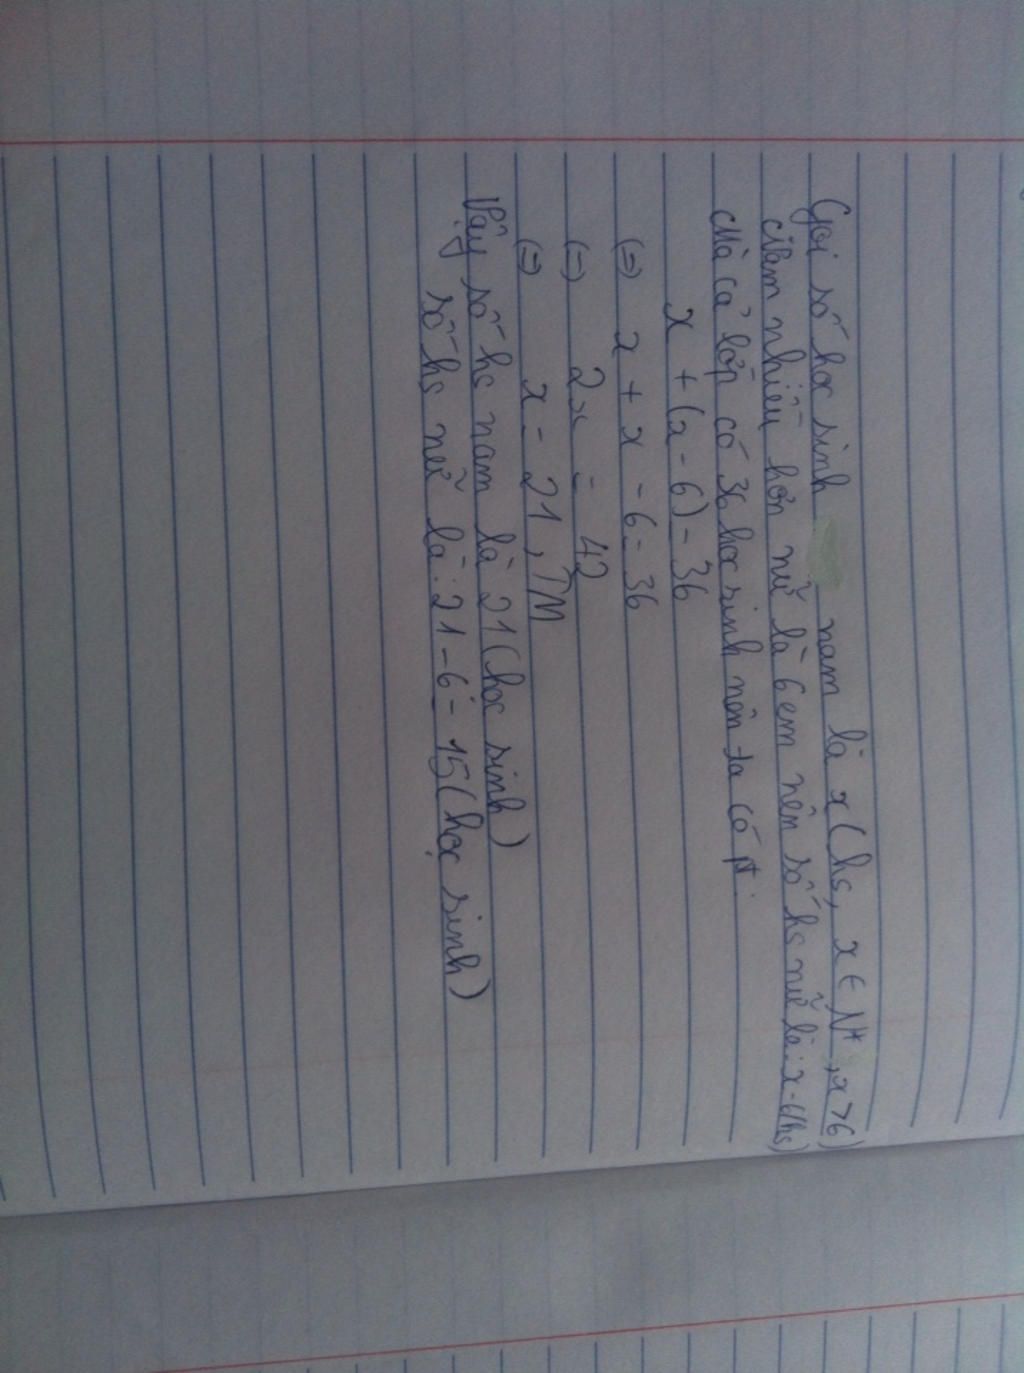 Gọi số học sinh nam là x (hs, x ∈ N*, x > 6)
Nam nhiều hơn nữ là 6 em nên số hs nữ là: x - 6 (hs)
Mà cả lớp có 36 học sinh nên ta có pt:
x + (x - 6) = 36
(=) x + x - 6 = 36
(=) 2x = 42
(=) x = 21, TM
Vậy số hs nam là 21 (học sinh)
số hs nữ là: 21 - 6 = 15 (học sinh)